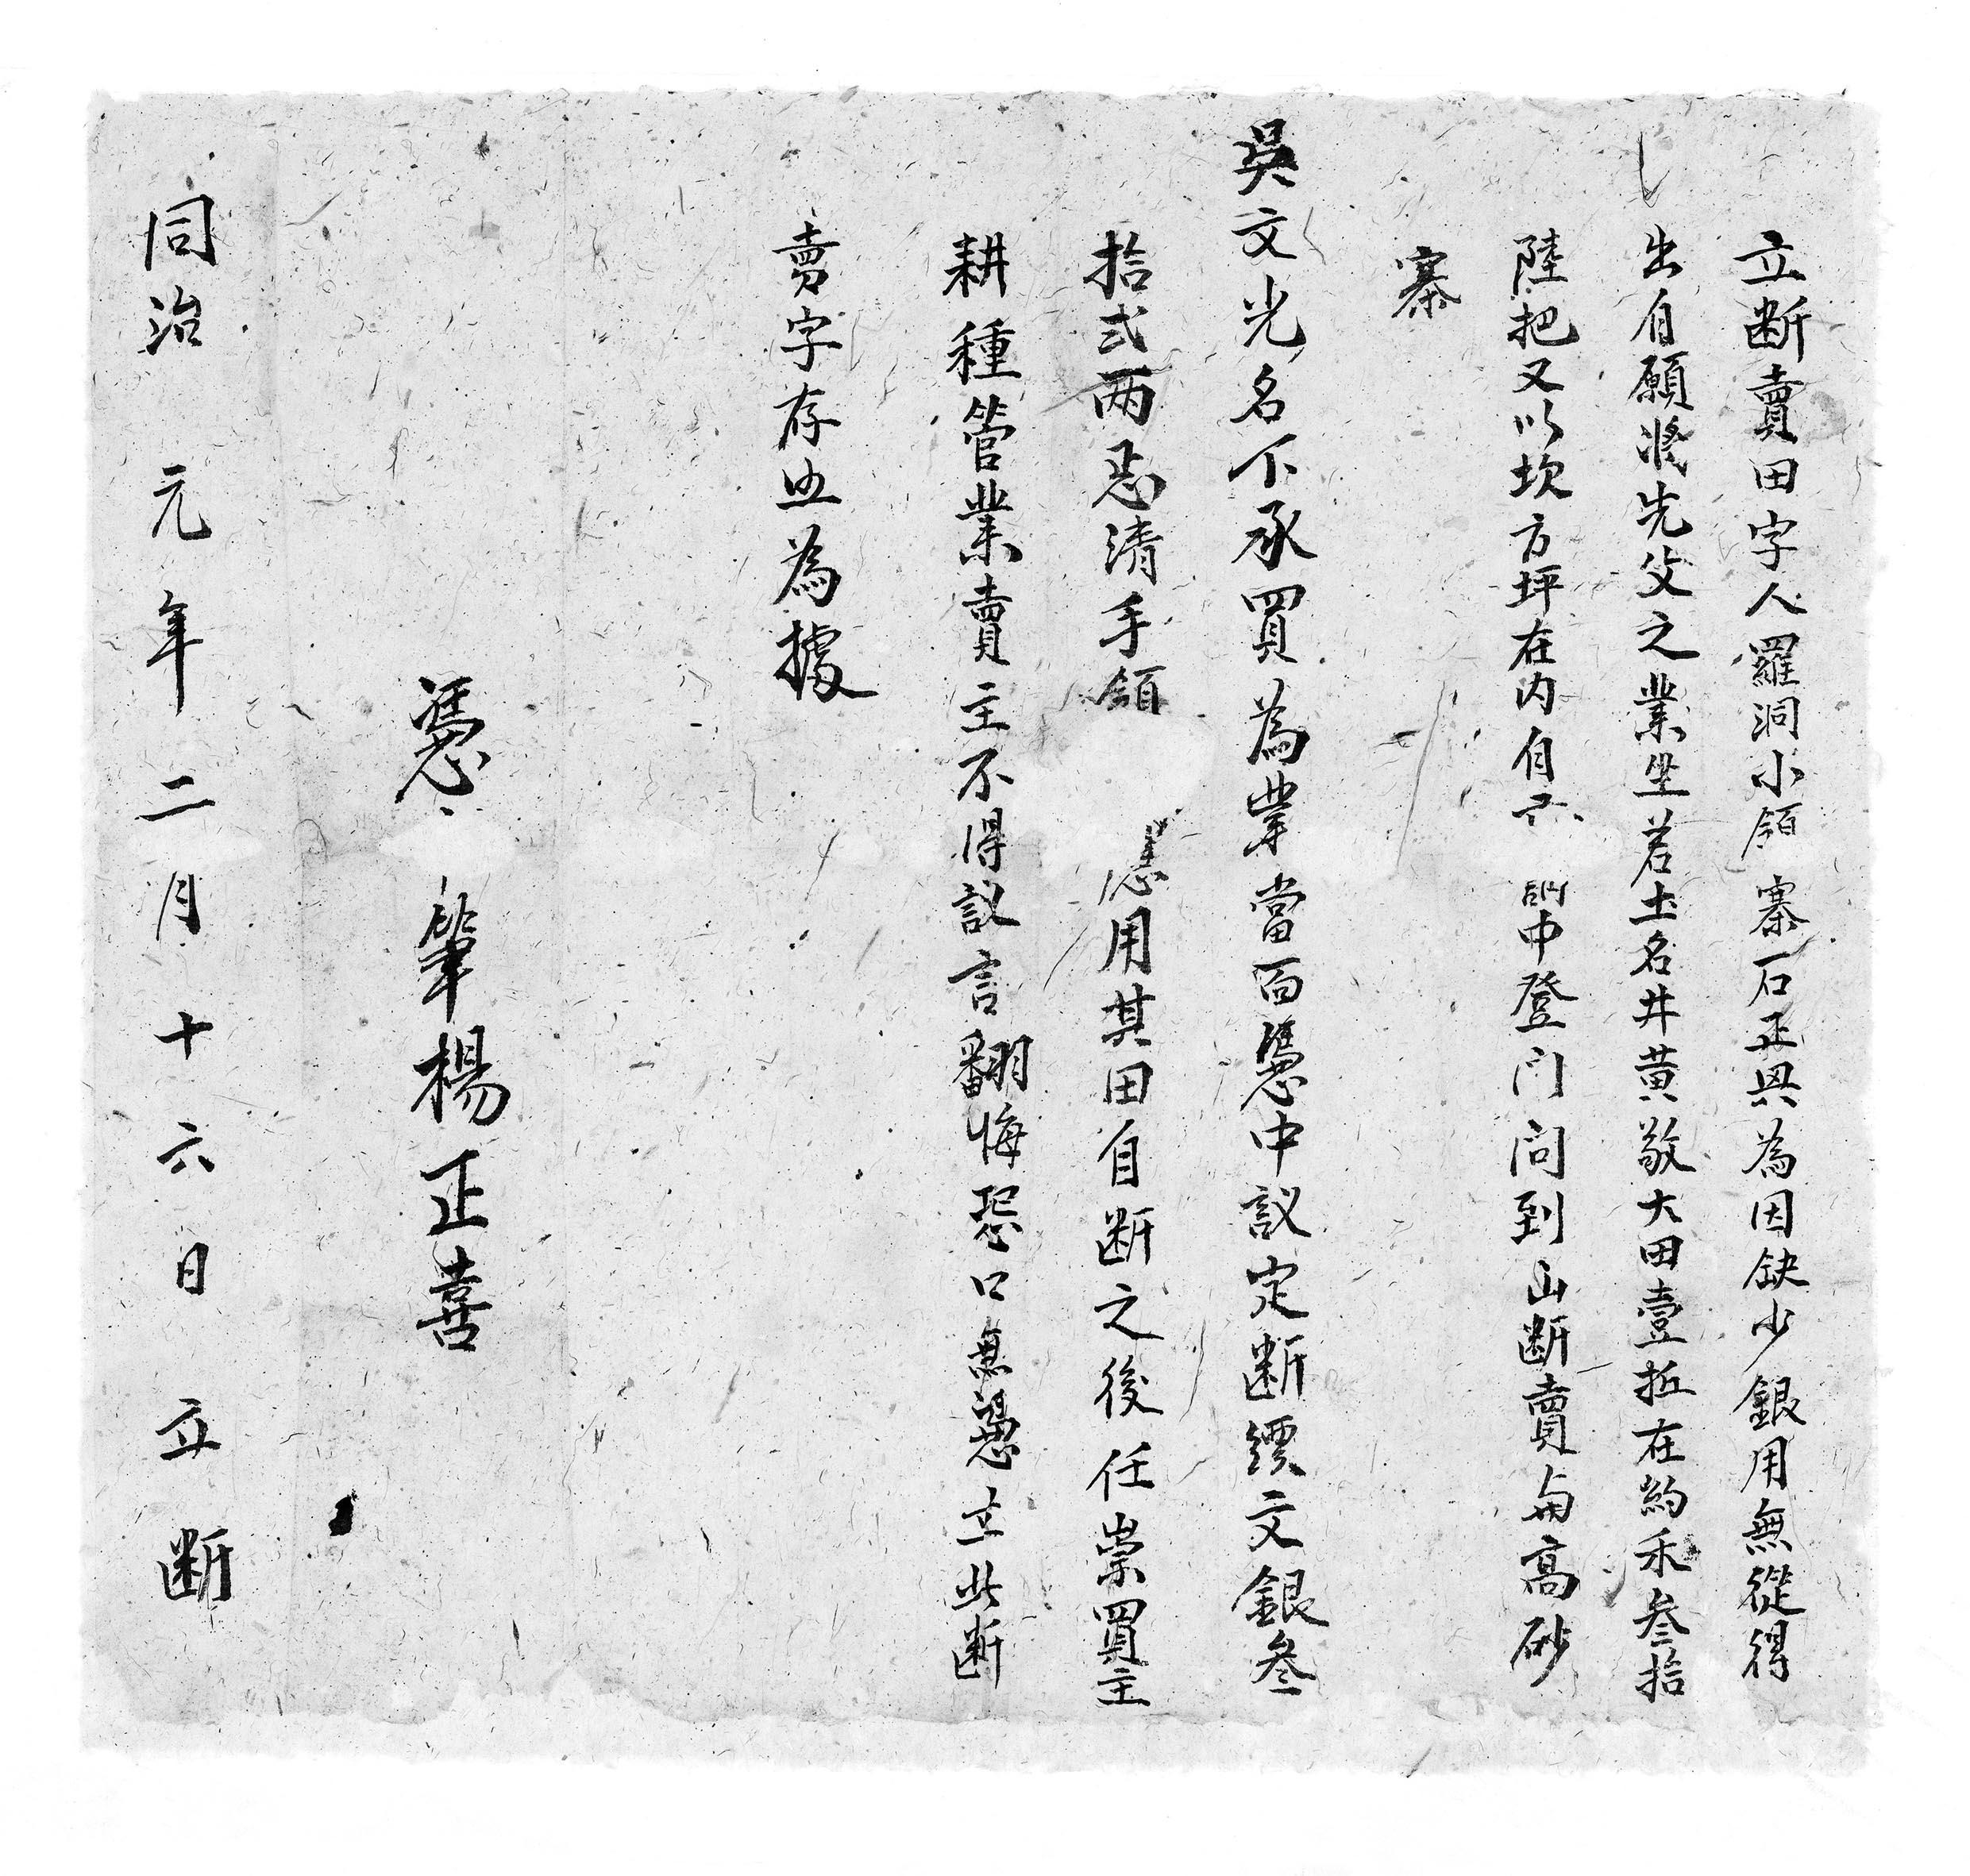 立断賣田字人羅洞小領寨石正興為因缺少銀用無從得
出自願將先父之業坐若土名井黄敬大田壹坵在約禾叁拾
陸把又以坎方坪在内自 中登门问到山断賣与高砂
寨
吴文光名下承買為業當面憑中議定断價文銀叁
拾弍两忍清手領 應用其田自断之後任崇買主
耕種管業賣主不得議言翻悔恐口無憑立此断
賣字存照為據
憑筆楊正喜
同治元年二月十六日立断